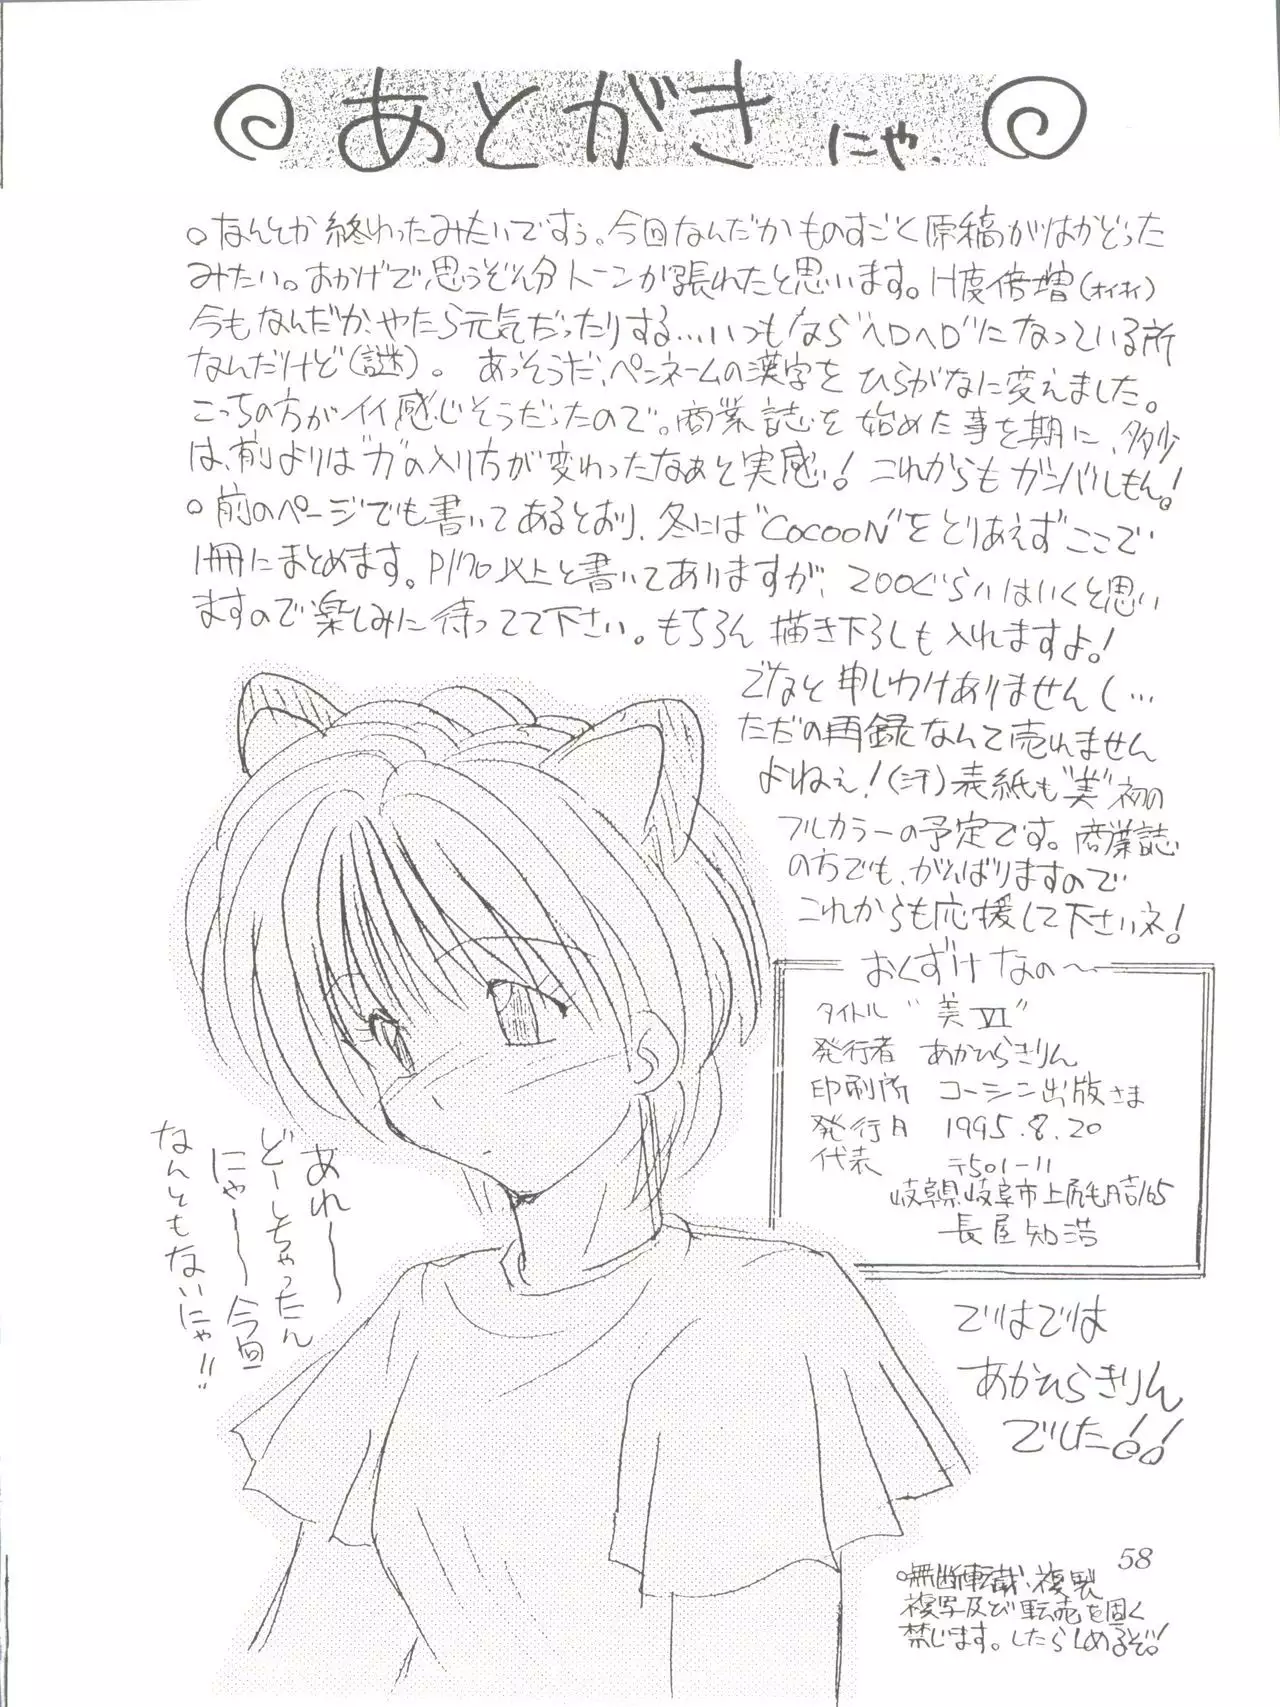 あとがき にゃ.
○なんとか終わったみたいですぅ。今回なんだかものすごく原稿がはかどった
みたい。おかげで思うぞん分トーンが張れたと思います。H度倍増(オイオイ)
今もなんだか、やたら元気だったりする…いつもなら"ヘロヘロ"になっている所
なんだけど(謎)。 あっそうだ、ペンネームの漢字をひらがなに変えました。
こっちの方がイイ感じそうだったので。商業誌を始めた事を期に、多少
は、前よりは"力"の入り方が変わったなぁと実感ん!これからもガンバルしもん。!
○前のページでも書いてあるとおり、冬には"COCOON"をとりあえずここで
1冊にまとめます。P170以上と書いてありますが、200ぐらいはいくと思い
ますので楽しみに待ってて下さい。もちろん描き下ろしも入れますよ。!
でなと申しわけありませんし…
ただの再録なんて売れません
よねぇ!(汗)表紙も"美"初の
フルカラーの予定です。商業誌
の方でも、がんばりますので
これからも応援して下さいネ!
おくずけなの〜
タイトル "美 VI"
発行者 あかひらきりん
印刷所 コーシン出版さま
発行月 1995.8.20
代表 〒501-11
岐阜県岐阜市上尻毛日吉165
長屋知浩
あれ〜
どーしちゃったん
にゃ〜今回
なんともないにゃ!!
ではでは
あかひらきりん
でした!!
58
○無断転載、複製
複写及び転売を固く
禁じます。したらしめるぞ!